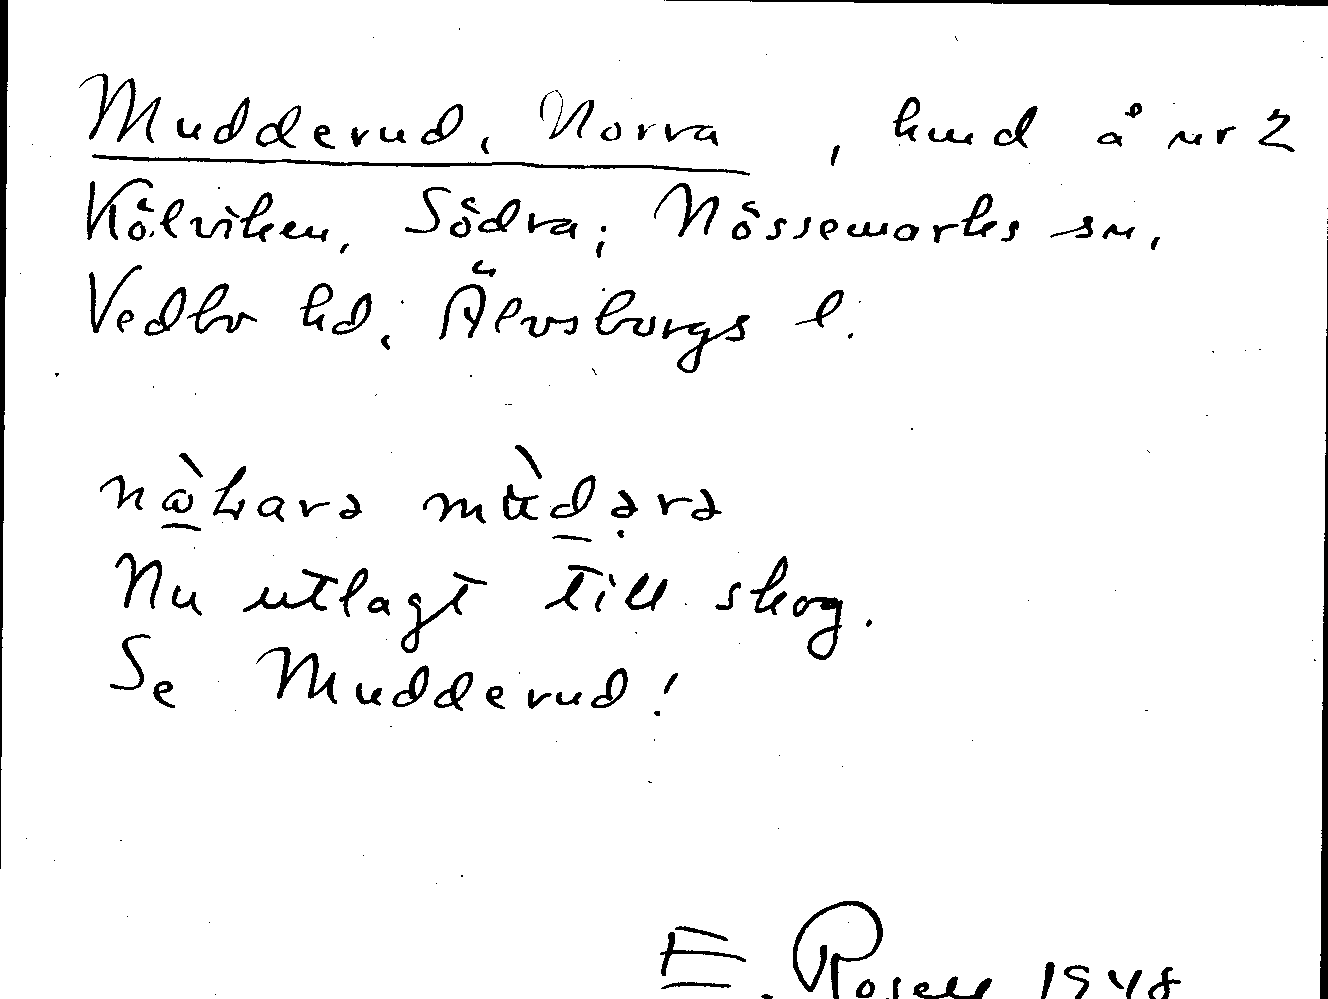 Mudderud, Norra, hmd å nr 2
Kölviken, Södra; Nössemarks sn,
Vedbo hd, Älvsborgs l.
Nu utlagt till skog.
Se Mudderud!
E. Rosell 1948